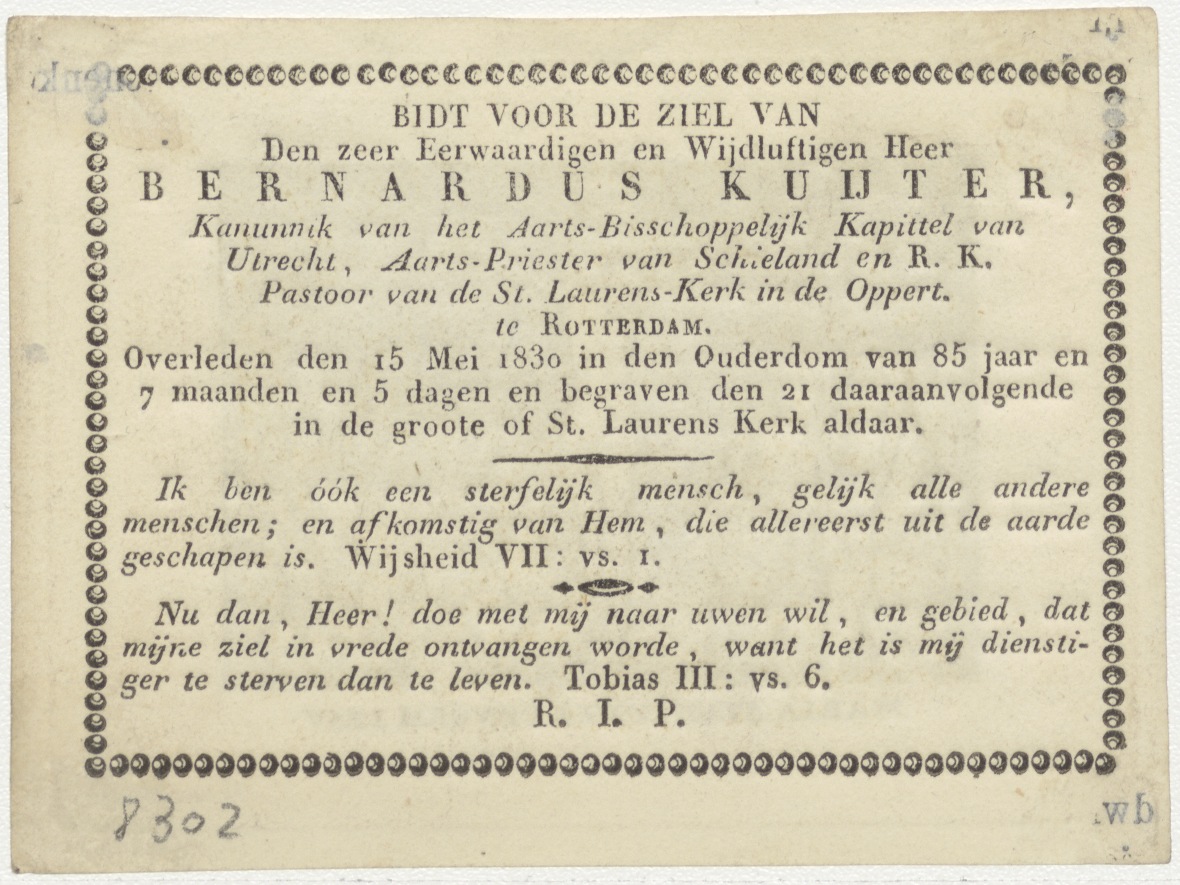 BIDT VOOR DE ZIEL VAN
Den zeer Eerwaardigen en Wijdluftigen Heer
BERNARDUS KUIJTER,
Kanunnik van het Aarts-Bisschoppelijk Kapittel van
Utrecht, Aarts-Priester van Schieland en R. K.
Pastoor van de St. Laurens-Kerk in de Oppert.
te ROTTERDAM.
Overleden den 15 Mei 1830 in den Ouderdom van 85 jaar en
7 maanden en 5 dagen en begraven den 21 daaraanvolgende
in de groote of St. Laurens Kerk aldaar.
Ik ben óók een sterfelijk mensch, gelijk alle andere
menschen; en afkomstig van Hem, die allereerst uit de aarde
geschapen is. Wijsheid VII: vs. 1.
Nu dan, Heer! doe met mij naar uwen wil, en gebied, dat
mijne ziel in vrede ontvangen worde, want het is mij diensti-
ger te sterven dan te leven. Tobias III: vs. 6.
R. I. P.
8302